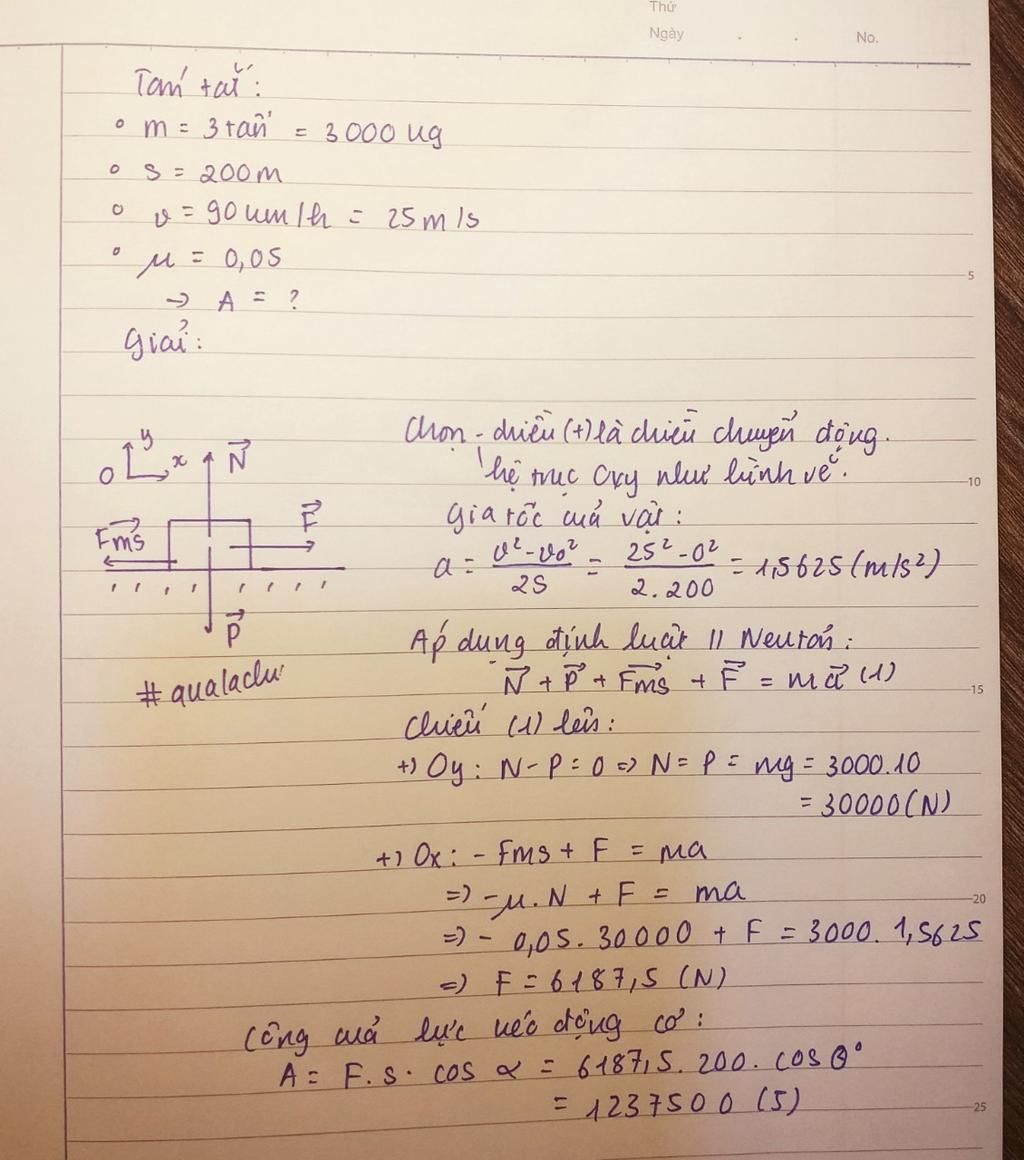 Thứ
Ngày . . No.
Tóm tắt:
° m = 3 tấn = 3000 kg
° s = 200 m
° v = 90 km/h = 25 m/s
° μ = 0,05
→ A = ?
Giải:
Chọn - chiều (+) là chiều chuyển động.
hệ trục Oxy như hình vẽ.
y
O x
N
Fms
F
P
#qualachu
Gia tốc của vật:
a = v² - v₀² / 2S = 25² - 0² / 2.200 = 1,5625 (m/s²)
Áp dụng định luật II Neuton:
N + P + Fms + F = ma (1)
Chiếu (1) lên:
+) Oy: N - P = 0 => N = P = mg = 3000.10
= 30000 (N)
+) Ox: - Fms + F = ma
=> -μ.N + F = ma
=> - 0,05.30000 + F = 3000.1,5625
=> F = 6187,5 (N)
Công của lực kéo động cơ:
A = F.s.cos α = 6187,5.200.cos 0°
= 1237500 (J)
5
10
15
20
25